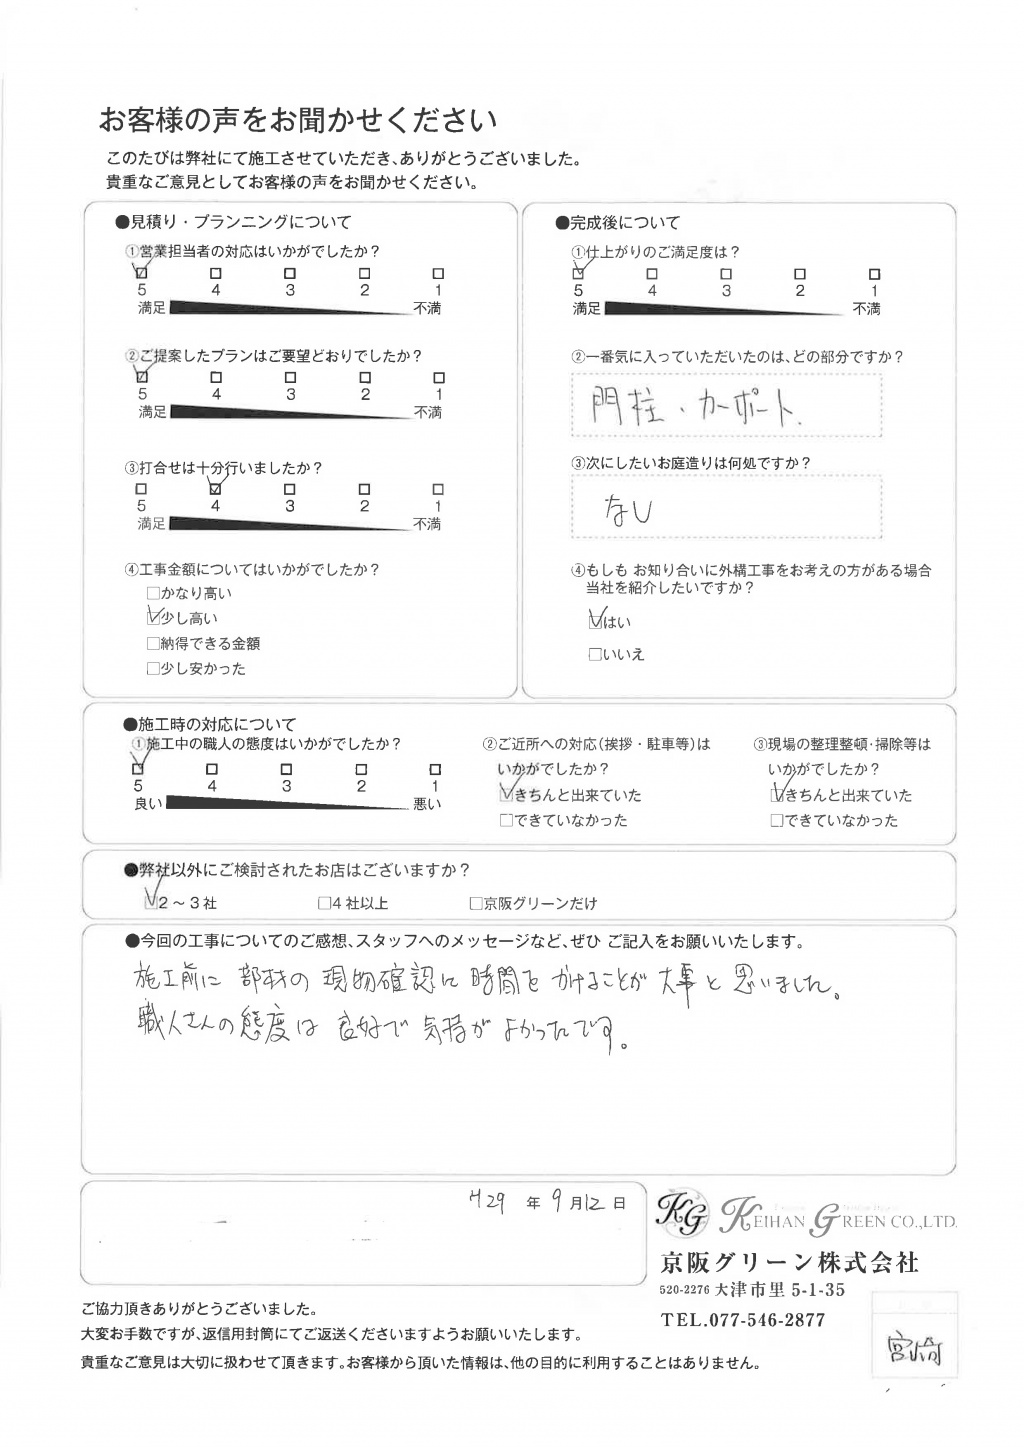 お客様の声をお聞かせください
このたびは弊社にて施工させていただき、ありがとうございました。
貴重なご意見としてお客様の声をお聞かせください。
●見積り・プランニングについて
①営業担当者の対応はいかがでしたか？
5 4 3 2 1
満足 不満
②ご提案したプランはご要望どおりでしたか？
5 4 3 2 1
満足 不満
③打合せは十分行いましたか？
5 4 3 2 1
満足 不満
④工事金額についてはいかがでしたか？
□かなり高い
☑少し高い
□納得できる金額
□少し安かった
●完成後について
①仕上がりのご満足度は？
5 4 3 2 1
満足 不満
②一番気に入っていただいたのは、どの部分ですか？
門柱・カーポート.
③次にしたいお庭造りは何処ですか？
なし
④もしも お知り合いに外構工事をお考えの方がある場合
当社を紹介したいですか？
☑はい
□いいえ
●施工時の対応について
①施工中の職人の態度はいかがでしたか？
5 4 3 2 1
良い 悪い
②ご近所への対応（挨拶・駐車等）は
いかがでしたか？
☑きちんと出来ていた
□できていなかった
③現場の整理整頓・掃除等は
いかがでしたか？
☑きちんと出来ていた
□できていなかった
●弊社以外にご検討されたお店はございますか？
☑2～3社 □4社以上 □京阪グリーンだけ
●今回の工事についてのご感想、スタッフへのメッセージなど、ぜひ ご記入をお願いいたします。
施工前に 部材の 現物確認に 時間を かけることが 大事と 思いました。
職人さんの態度は 良好で 気持が よかったです。
H29 年 9 月 12 日
KG KEIHAN GREEN CO.,LTD.
京阪グリーン株式会社
520-2276 大津市里 5-1-35
TEL.077-546-2877
宮崎
ご協力頂きありがとうございました。
大変お手数ですが、返信用封筒にてご返送くださいますようお願いいたします。
貴重なご意見は大切に扱わせて頂きます。お客様から頂いた情報は、他の目的に利用することはありません。